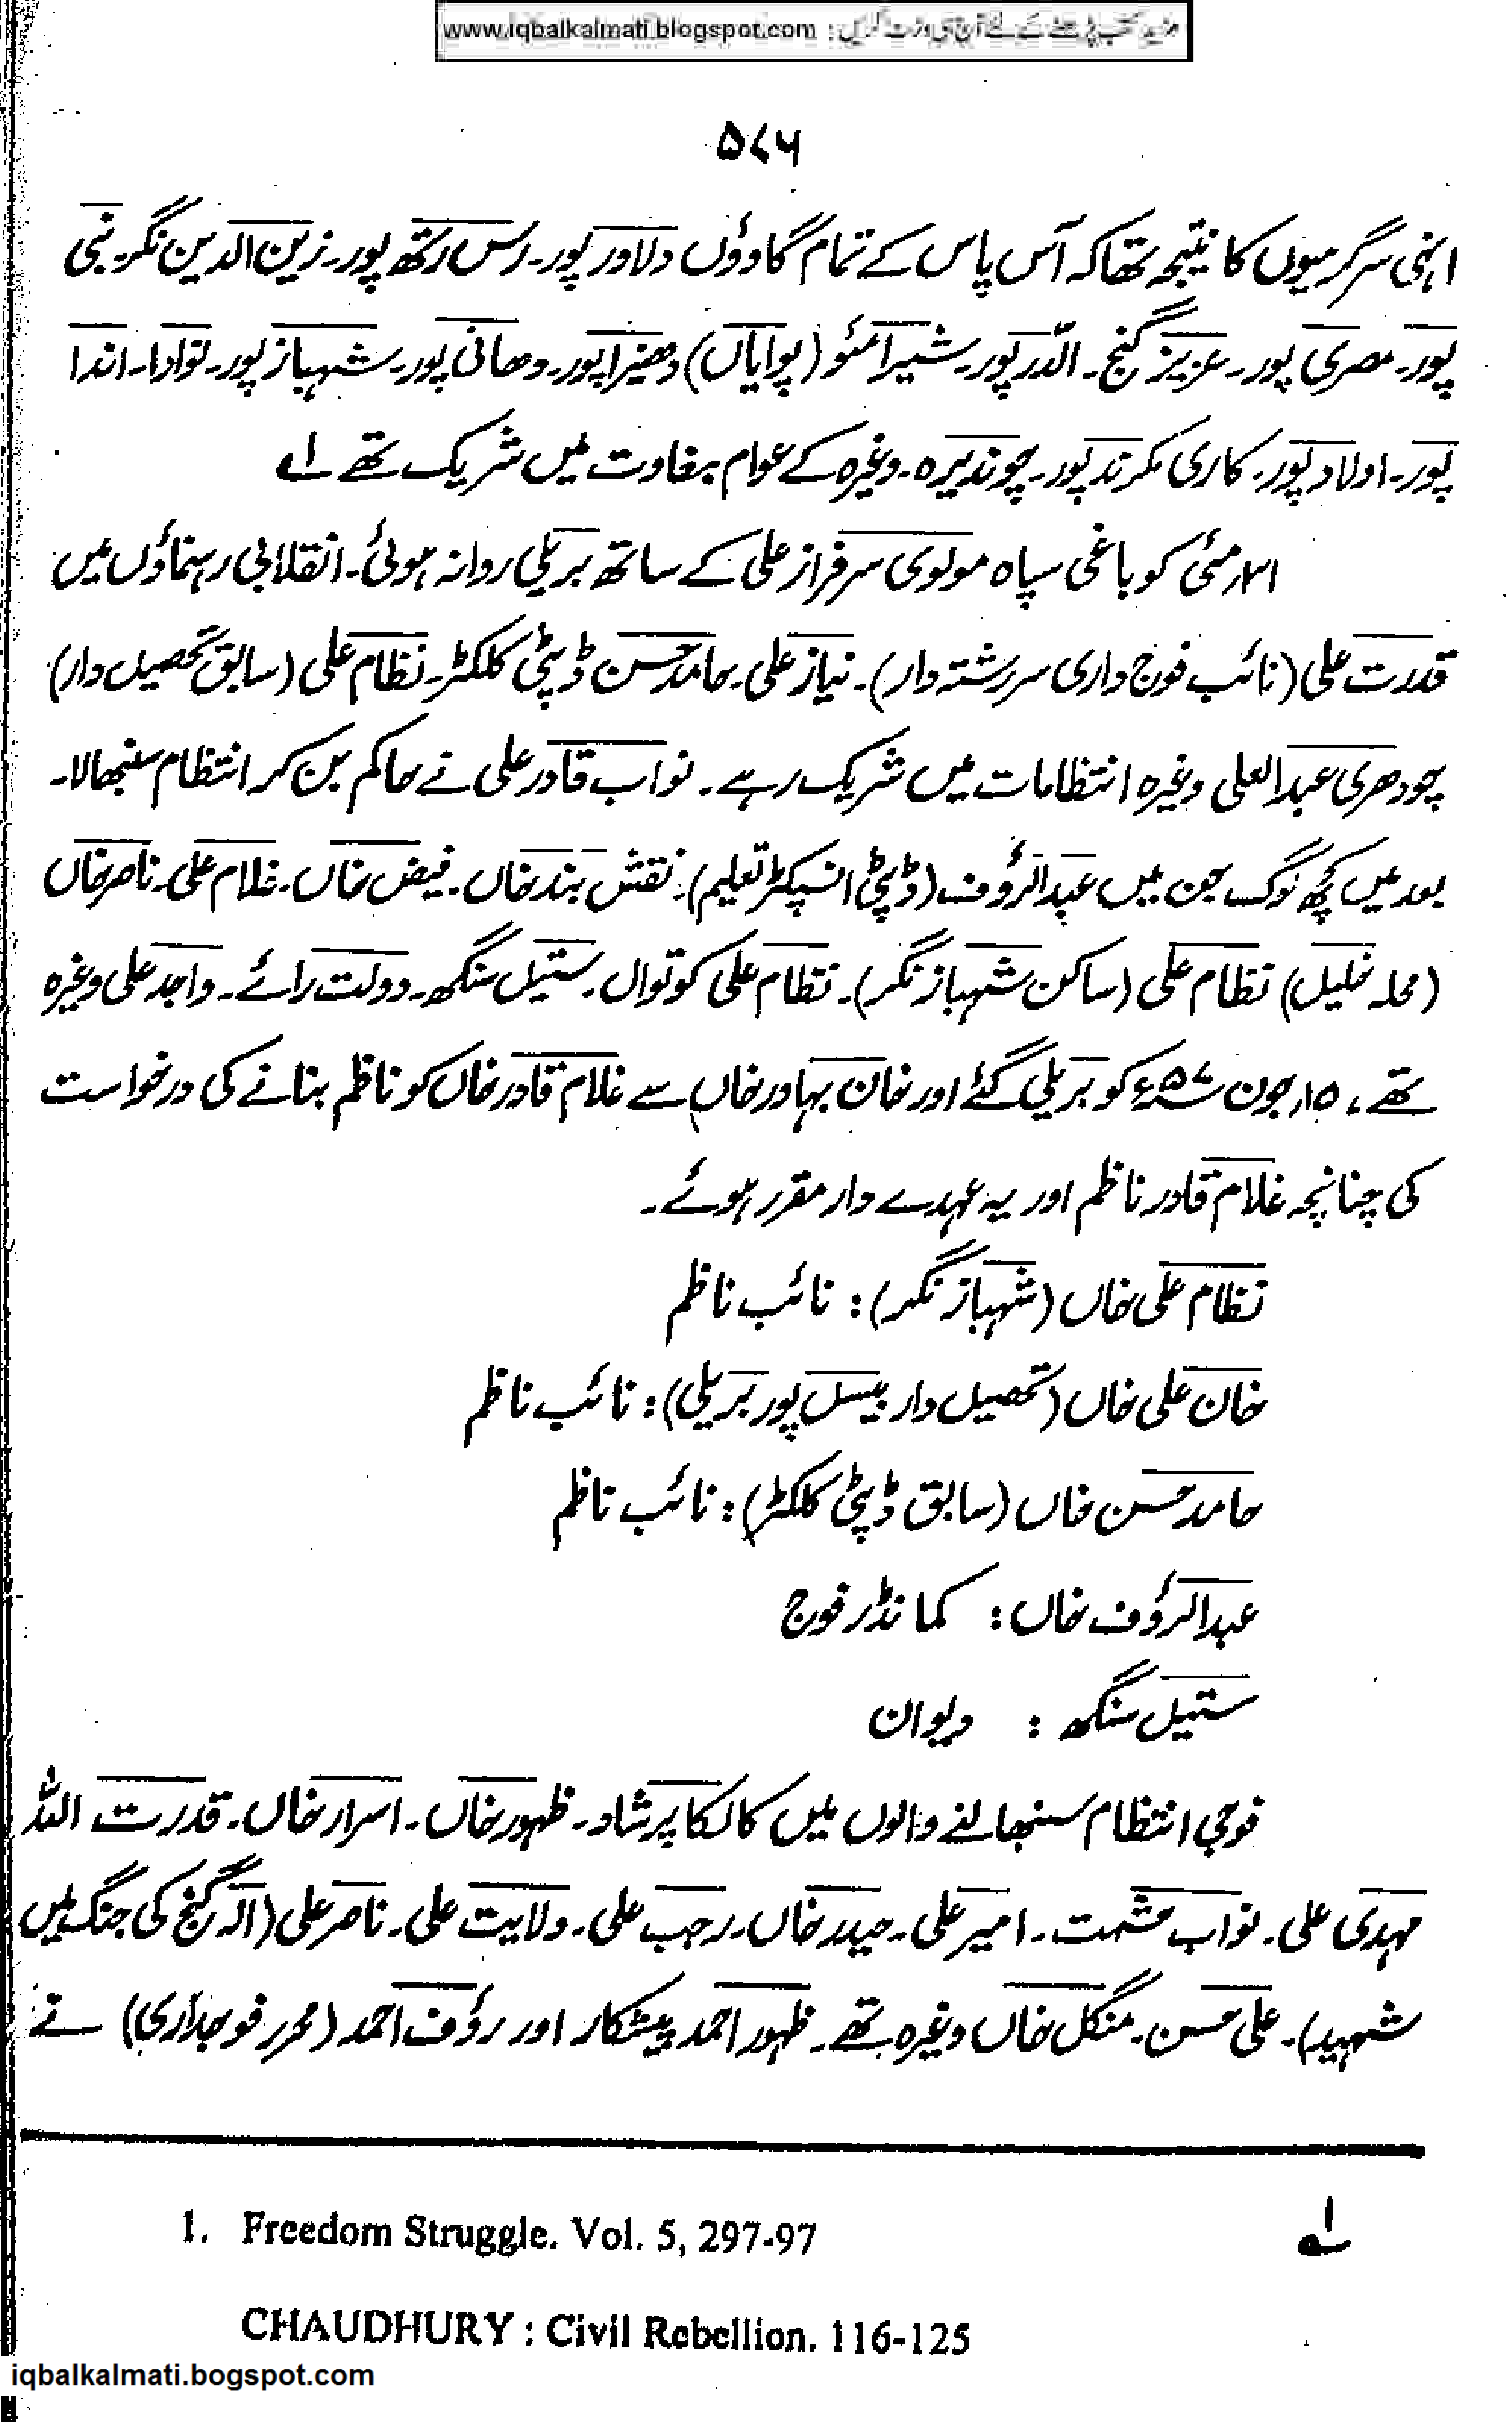 مزید کتب پڑھنے کے لئے آج ہی وزٹ کریں : www.iqbalkalmati.blogspot.com
۵۷۶
انہی سرگرمیوں کا نتیجہ تھا کہ آس پاس کے تمام گاوؤں دلاور پور۔ رس رتھ پور۔ زین الدین نگر۔ نبی
پور۔ مصری پور۔ عزیز گنج۔ الدر پور۔ شیرا مئو (پوایاں) دھنیرا پور۔ دھانی پور۔ شہباز پور۔ نوادا۔ اندا
پور۔ اولاد پور۔ کاری مکرند پور۔ چوندیرہ۔ وغیرہ کے عوام بغاوت میں شریک تھے ۱ے
۳۱ رمئی کو باغی سپاہ مولوی سرفراز علی کے ساتھ بریلی روانہ ہوئی۔ انقلابی رہنماؤں میں
قدرت علی (نائب فوج داری سررشتہ دار)۔ نیاز علی۔ حامد حسن ڈپٹی کلکٹر۔ نظام علی (سابق تحصیل دار)
چودھری عبدالعلی وغیرہ انتظامات میں شریک رہے۔ نواب قادر علی نے حاکم بن کر انتظام سنبھالا۔
بعد میں کچھ لوگ جن میں عبدالرؤف (ڈپٹی انسپکٹر تعلیم)۔ نقش بند خاں۔ فیض خاں۔ غلام علی۔ ناصر خاں
(محلہ خلیل) نظام علی (ساکن شہباز نگر)۔ نظام علی کوتوال۔ ستیل سنگھ۔ دولت رائے۔ واجد علی وغیرہ
تھے، ۱۵ رجون ۵۷ء کو بریلی گئے اور خان بہادر خاں سے غلام قادر خاں کو ناظم بنانے کی درخواست
کی چنانچہ غلام قادر ناظم اور یہ عہدے دار مقرر ہوئے۔
نظام علی خاں (شہباز نگر) : نائب ناظم
خان علی خاں (تحصیل دار بیسل پور بریلی) : نائب ناظم
حامد حسن خاں (سابق ڈپٹی کلکٹر) : نائب ناظم
عبدالرؤف خاں : کمانڈر فوج
ستیل سنگھ : دیوان
فوجی انتظام سنبھالنے والوں میں کالکا پرشاد۔ ظہور خاں۔ اسرار خاں۔ قدرت اللہ
مہدی علی۔ نواب حشمت۔ امیر علی۔ حیدر خاں۔ رجب علی۔ ولایت علی۔ ناصر علی (الہ گنج کی جنگ میں
شہید)۔ علی حسن۔ منگل خاں وغیرہ تھے۔ ظہور احمد پیشکار اور رؤف احمد (محرر فوجداری) نے
۱ے 1. Freedom Struggle. Vol. 5, 297-97
CHAUDHURY : Civil Rebellion. 116-125
iqbalkalmati.bogspot.com